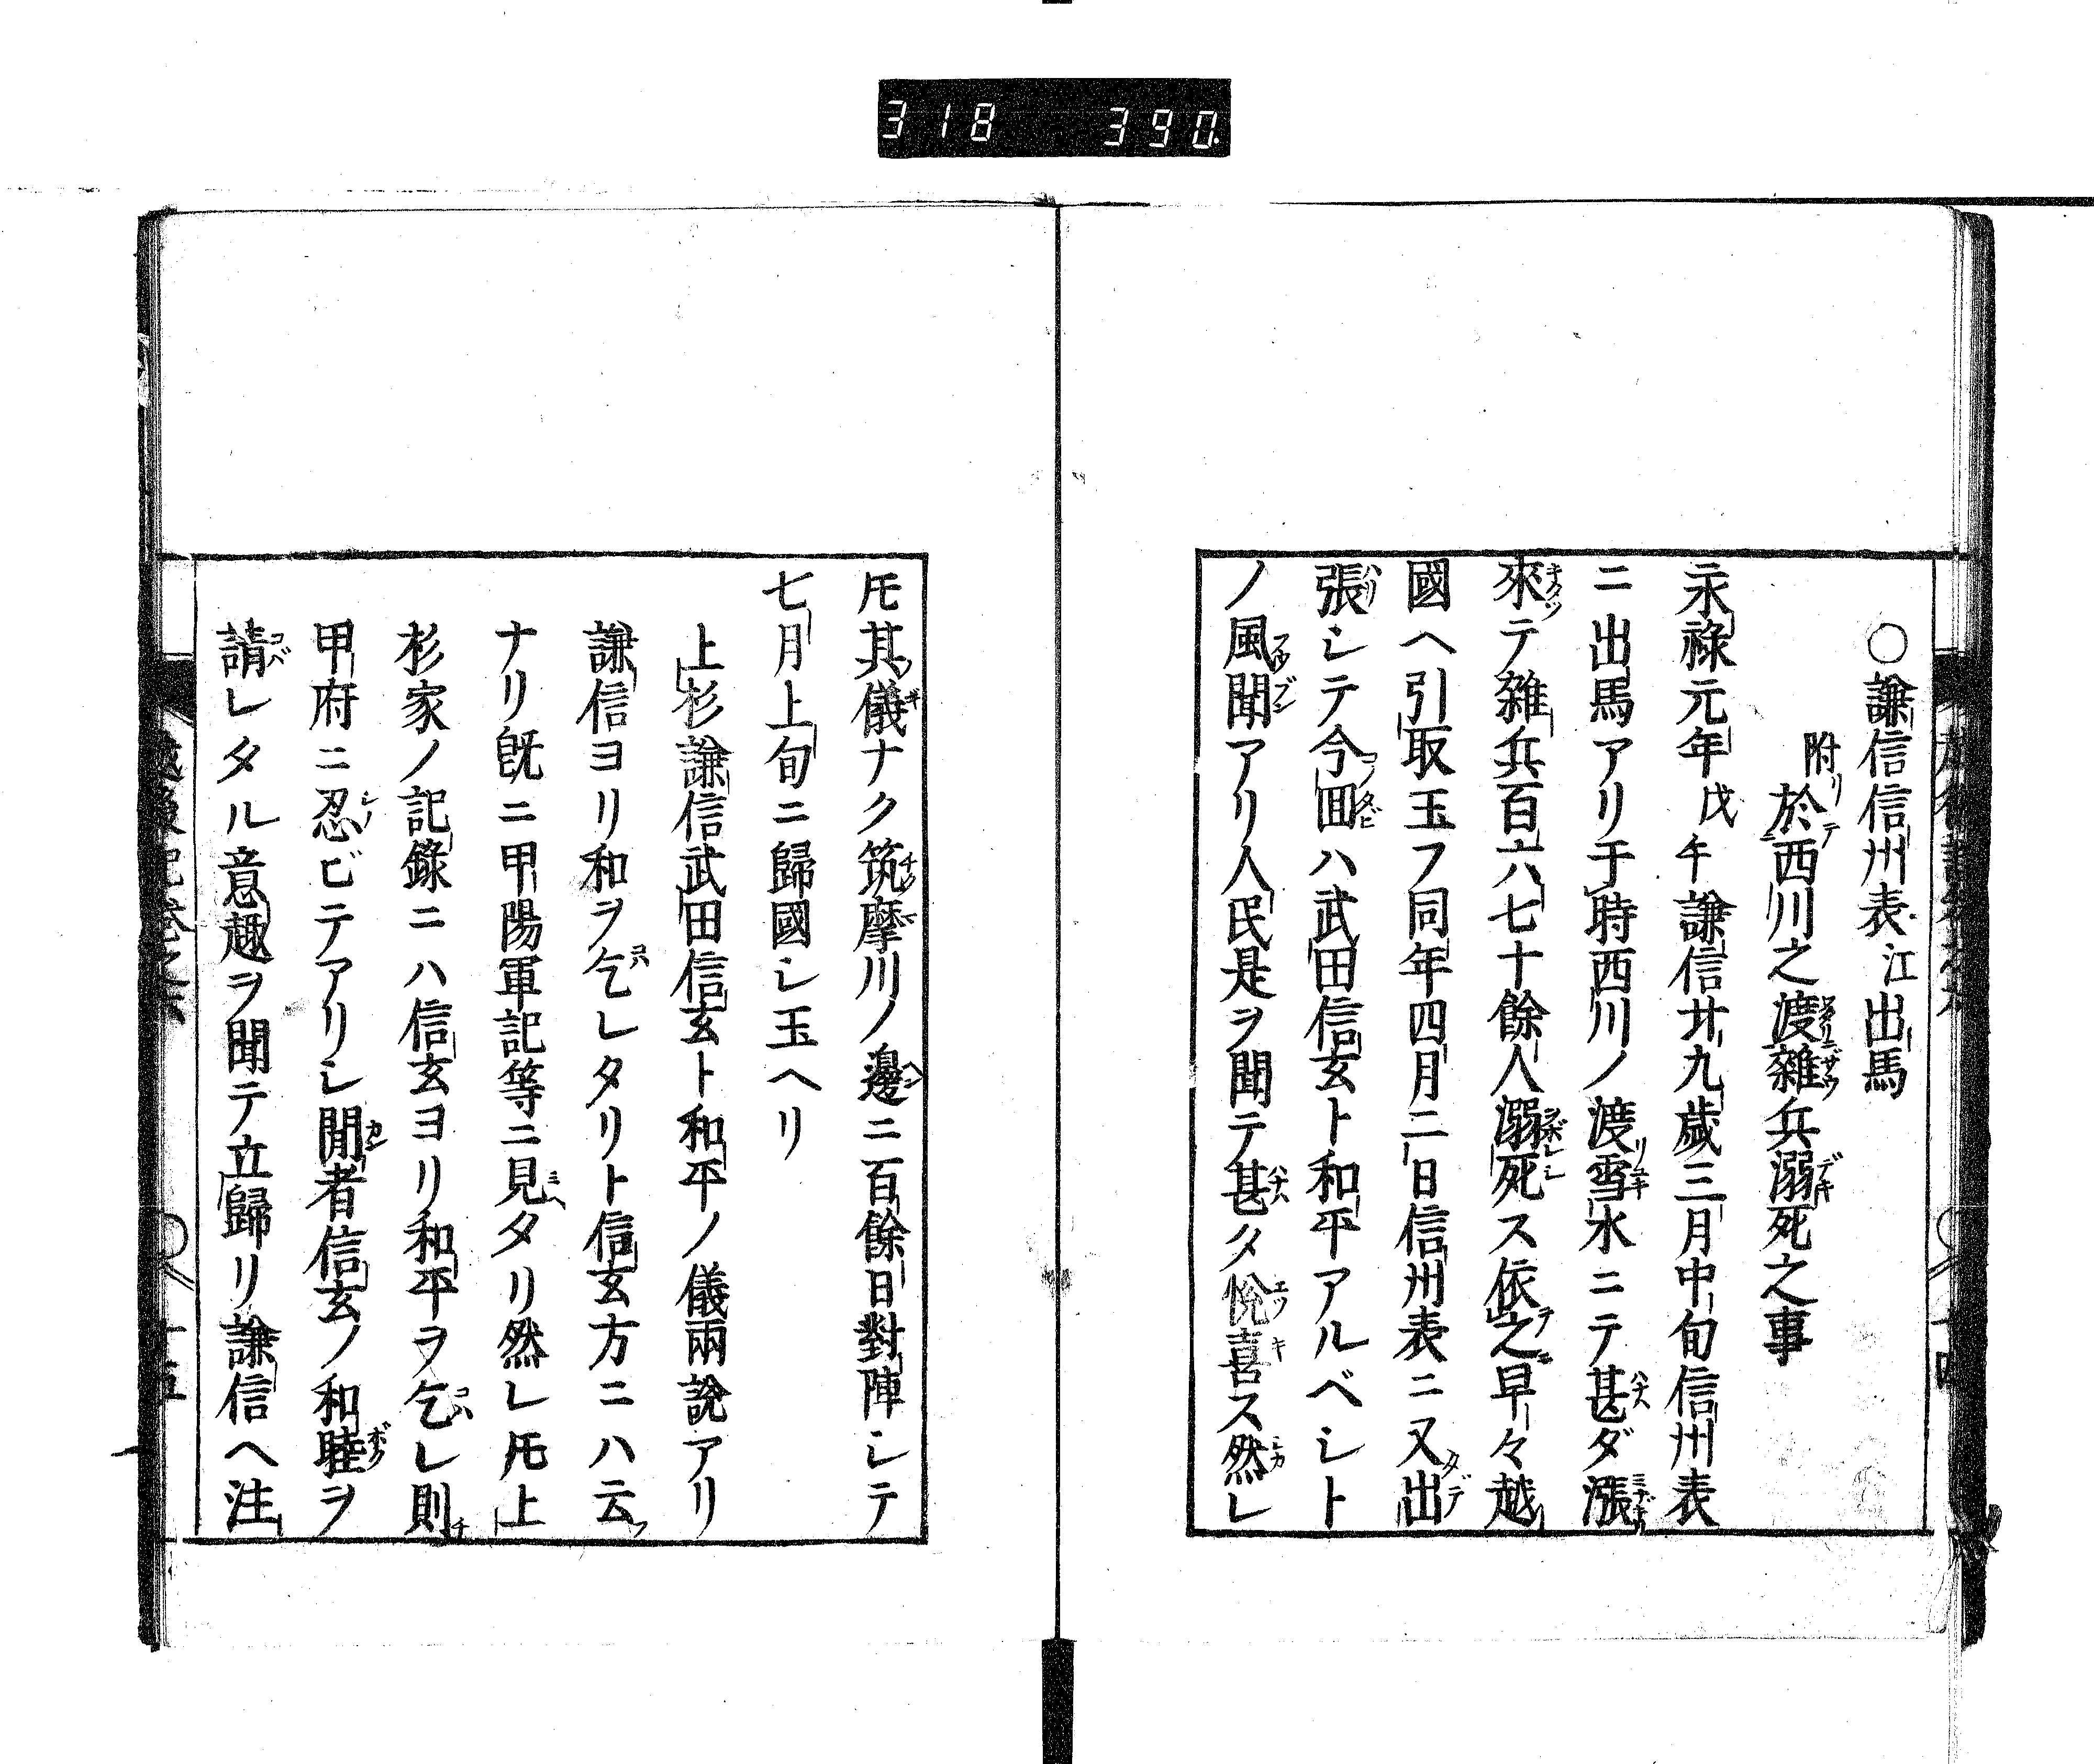 318 390
〇謙信信州表江出馬
附於西川之渡雜兵溺死之事
永祿元年戊午謙信廿九歲三月中旬信州表
ニ出馬アリ于時西川ノ渡雪水ニテ甚ダ漲
來テ雜兵百六七十餘人溺死ス依之早々越
國ヘ引取玉フ同年四月二日信州表ニ又出
張シテ今囬ハ武田信玄ト和平アルベシト
ノ風聞アリ人民是ヲ聞テ甚タ悅喜ス然レ
𪜈其儀ナク筑摩川ノ邊ニ百餘日對陣シテ
七月上旬ニ歸國シ玉ヘリ
上杉謙信武田信玄ト和平ノ儀兩說アリ
謙信ヨリ和ヲ乞レタリト信玄方ニハ云
ナリ旣ニ甲陽軍記等ニ見タリ然レ𪜈上
杉家ノ記錄ニハ信玄ヨリ和平ヲ乞レ則
甲府ニ忍ビテアリシ閒者信玄ノ和睦ヲ
請レタル意趣ヲ聞テ立歸リ謙信ヘ注